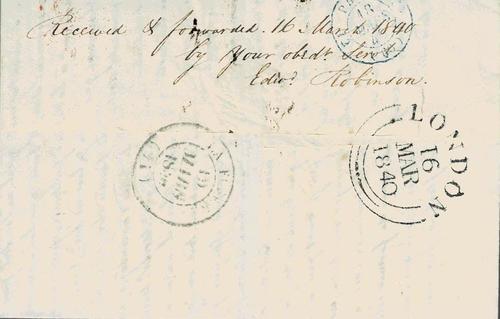 Received & forwarded. 16 March 1840
by your obedt. Servt
Edwd. Robinson.
LONDON
16
MAR
1840
19
MARS